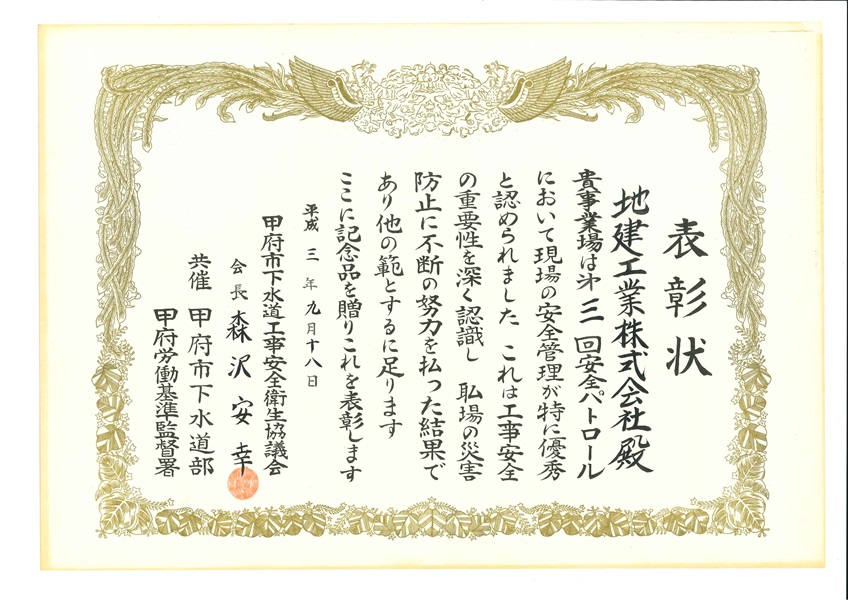 表彰状
地建工業株式会社殿
貴事業場は㐧三回安全パトロール
において現場の安全管理が特に優秀
と認められました これは工事安全
の重要性を深く認識し 職場の災害
防止に不断の努力を払った結果で
あり他の範とするに足ります
ここに記念品を贈りこれを表彰します
平成三年九月十八日
甲府市下水道工事安全衛生協議会
会長 森沢安幸
共催 甲府市下水道部
甲府労働基準監督署